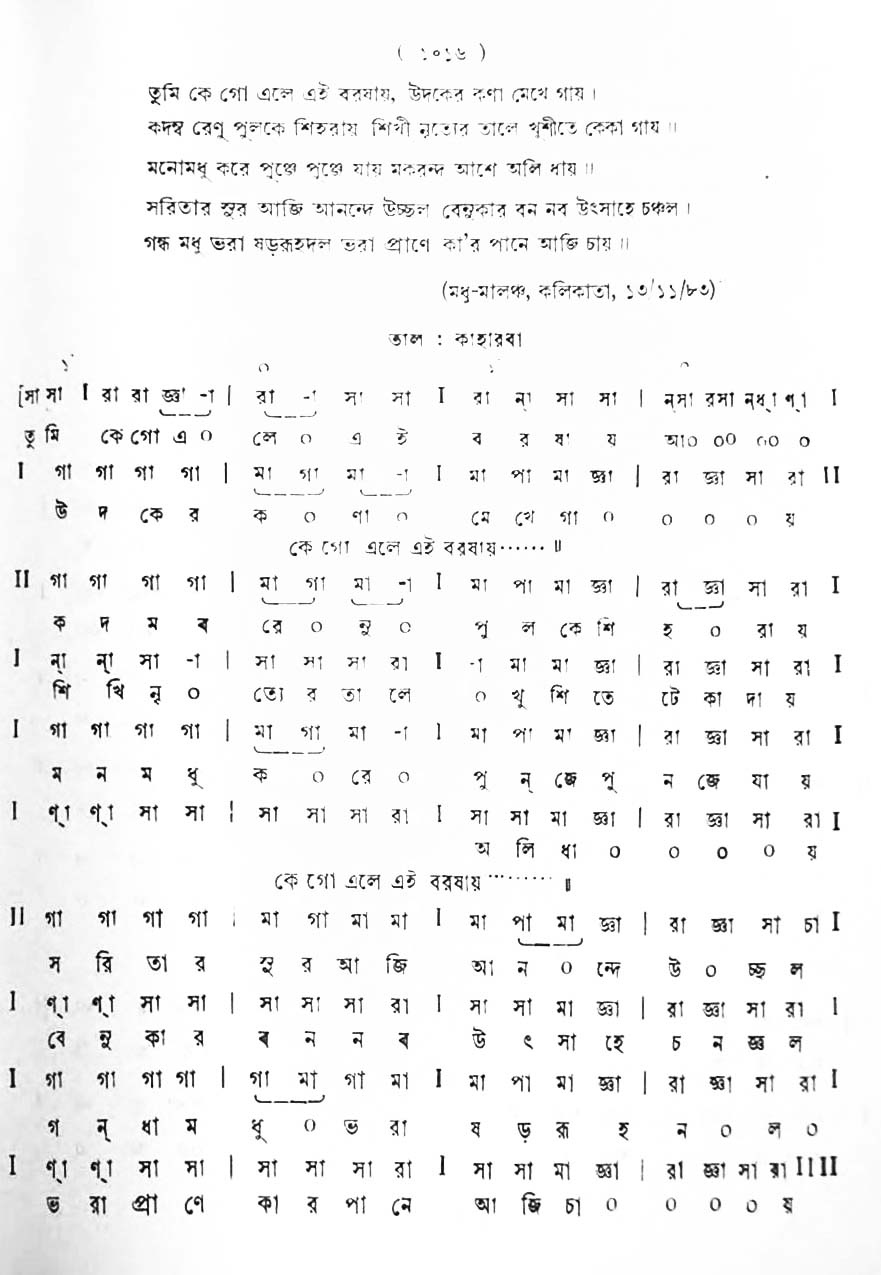 ( ১০১৬ )
তুমি কে গো এলে এই বরষায়, উদকের কণা মেখে গায়।
কদম্ব রেণু পুলকে শিহরায় শিখী নৃত্যের তালে খুশীতে কেকা গায়॥
মনোমধু করে পুঞ্জে পুঞ্জে যায় মকরন্দ আশে অলি ধায়॥
সরিতার সুর আজি আনন্দে উচ্ছল বেনুকার বন নব উৎসাহে চঞ্চল।
গন্ধ মধু ভরা ষড়রূহদল ভরা প্রাণে কা'র পানে আজি চায়॥
(মধু-মালঞ্চ, কলিকাতা, ১৩/১১/৮৩)
তাল : কাহারবা
১´ ০ ১´ ০
[সা সা I রা রা জ্ঞা -া | রা -া সা সা I রা ন্া সা সা | ন্সা রসা ন্ধ্া ণ্া I
তু মি কে গো এ ০ লে ০ এ ই ব র ষা য় আ০ ০০ ০০ ০
I গা গা গা গা | মা গা মা -া I মা পা মা জ্ঞা | রা জ্ঞা সা রা II
উ দ কে র ক ০ ণা ০ মে খে গা ০ ০ ০ ০ য়
কে গো এলে এই বরষায়······ ॥
II গা গা গা গা | মা গা মা -া I মা পা মা জ্ঞা | রা জ্ঞা সা রা I
ক দ ম ব রে ০ নু ০ পু ল কে শি হ ০ রা য়
I ন্া ন্া সা -া | সা সা সা রা I -া মা মা জ্ঞা | রা জ্ঞা সা রা I
শি খি নৃ ০ ত্যে র তা লে ০ খু শি তে টে কা দা য়
I গা গা গা গা | মা গা মা -া I মা পা মা জ্ঞা | রা জ্ঞা সা রা I
ম ন ম ধু ক ০ রে ০ পু ন্ জে পু ন জে যা য়
I ণ্া ণ্া সা সা | সা সা সা রা I সা সা মা জ্ঞা | রা জ্ঞা সা রা I
অ লি ধা ০ ০ ০ ০ য়
কে গো এলে এই বরষায় ········· ॥
II গা গা গা গা | মা গা মা মা I মা পা মা জ্ঞা | রা জ্ঞা সা চা I
স রি তা র সু র আ জি আ ন ০ ন্দে উ ০ চ্ছ ল
I ণ্া ণ্া সা সা | সা সা সা রা I সা সা মা জ্ঞা | রা জ্ঞা সা রা I
বে নু কা র ব ন ন ব উ ৎ সা হে চ ন ঞ্চ ল
I গা গা গা গা | গা মা গা মা I মা পা মা জ্ঞা | রা জ্ঞা সা রা I
গ ন্ ধা ম ধু ০ ভ রা ষ ড় রূ হ ন ০ ল ০
I ণ্া ণ্া সা সা | সা সা সা রা I সা সা মা জ্ঞা | রা জ্ঞা সা রা II II
ভ রা প্রা ণে কা র পা নে আ জি চা ০ ০ ০ ০ য়